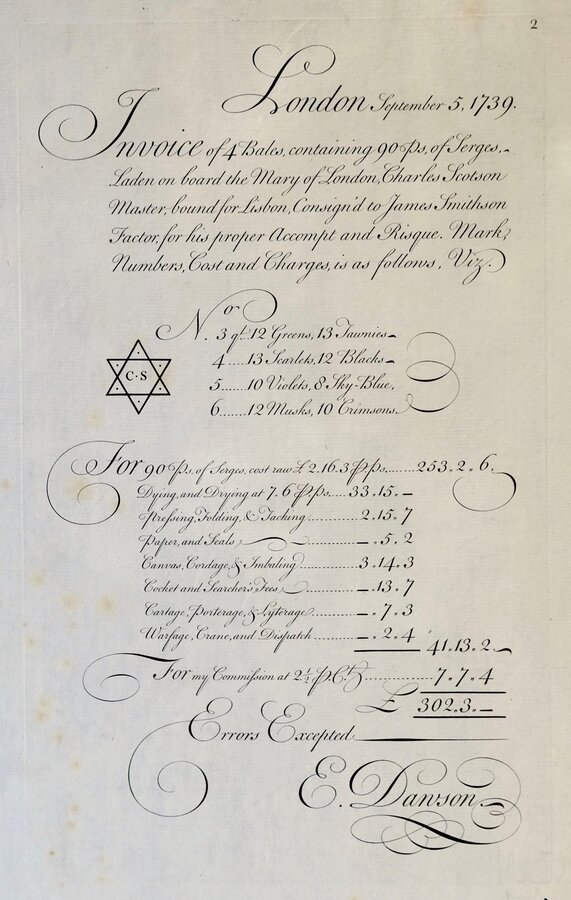 2
London September 5, 1739.
Invoice of 4 Bales, containing 90 Ps, of Serges,
Laden on board the Mary of London, Charles Scotson
Master, bound for Lisbon, Consign'd to James Smithson
Factor, for his proper Accompt and Risque. Mark,
Numbers, Cost and Charges, is as follows, Viz.
No. 3 qt. 12 Greens, 13 Tawnies
4.....13 Scarlets, 12 Blacks
C·S
5.....10 Violets, 8 Sky-Blue,
6......12 Musks, 10 Crimsons.
For 90 Ps. of Serges, cost raw £ 2.16.3 P Ps.......253.2.6.
Dying, and Drying at 7.6 P Ps.....33.15.–
Pressing, Folding, & Tacking............2.15.7
Paper, and Seals–.5.2
Canvas, Cordage, & Imbaling..............3.14.3
Cocket and Searcher's Fees..............–.13.7
Cartage, Porterage, & Lyterage............–.7.3
Warfage, Crane, and Dispatch............–.2.4
41.13.2.
For my Commission at 2½ P. Ct..................7.7.4
£ 302.3.–
Errors Excepted
E. Dawson.